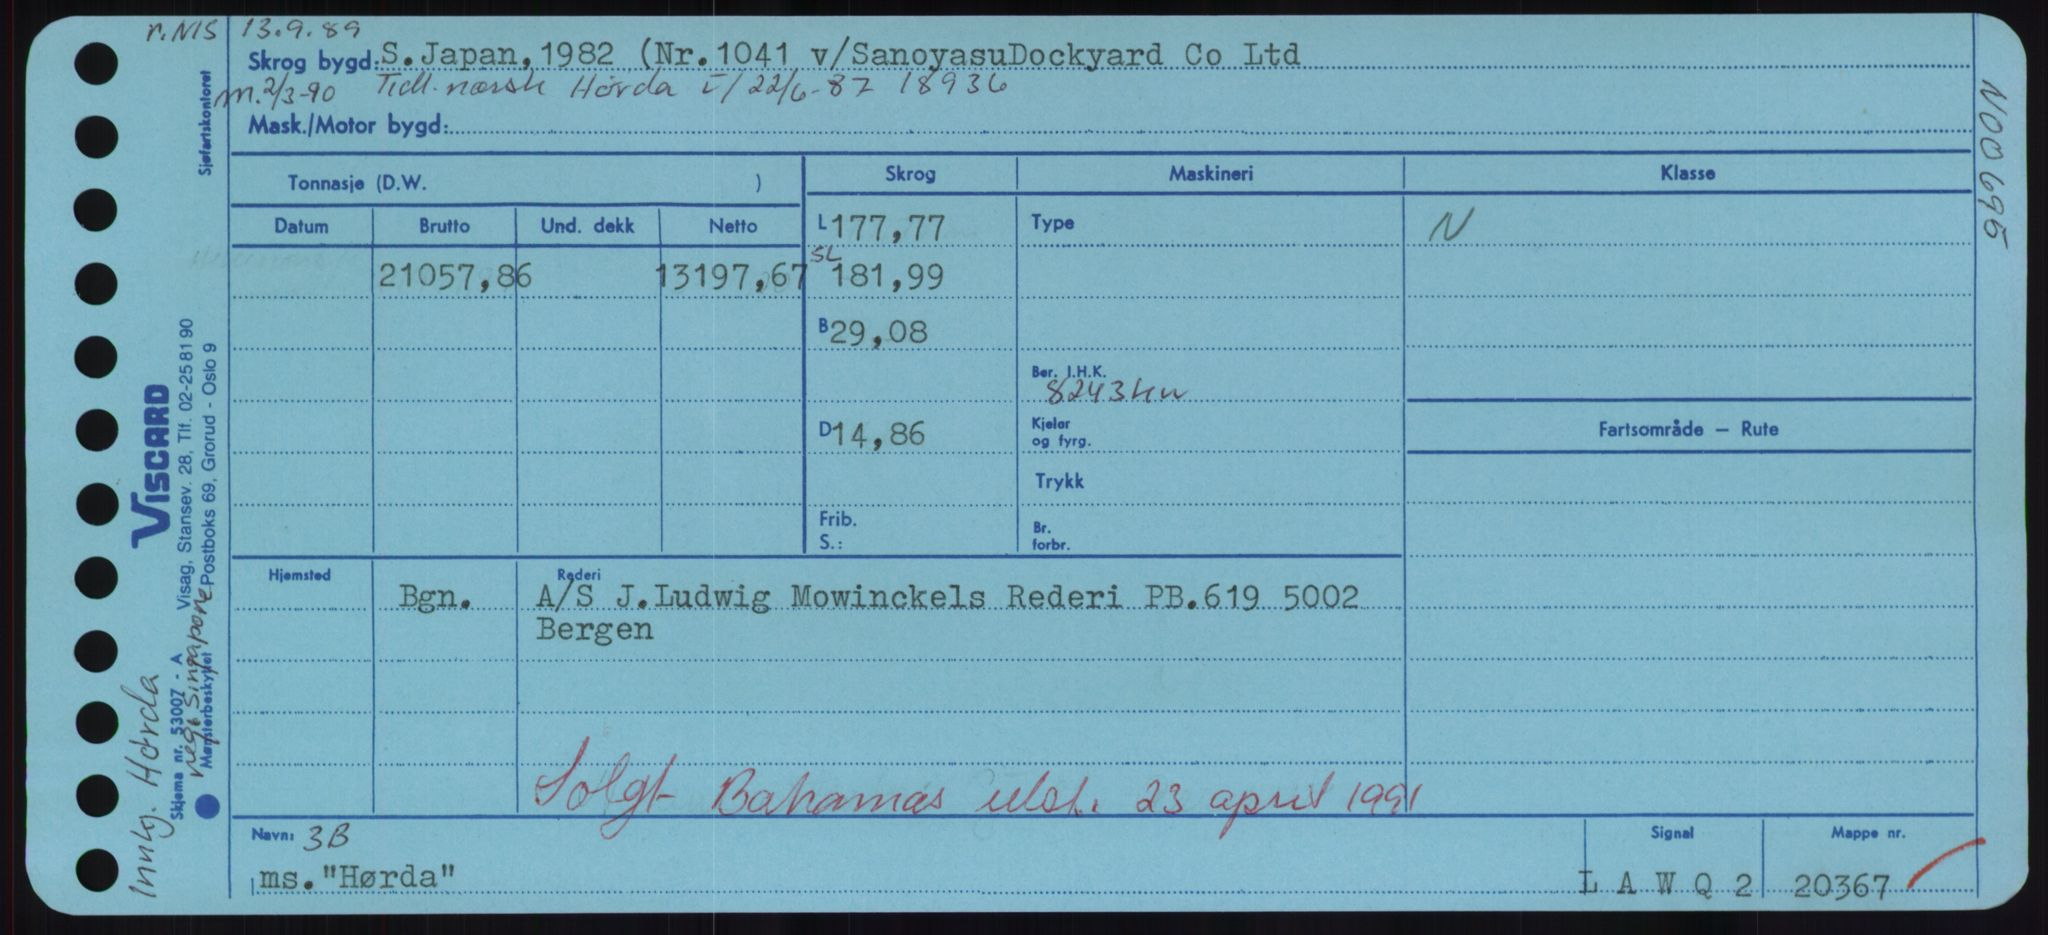 r.NIS 13.9.89
Skrog bygd: S.Japan,1982 (Nr.1041 v/SanoyasuDockyard Co Ltd
m.2/3-90 Tidl. norsk Hørda i/22/6-87 18936
Mask./Motor bygd:
Sjøfartskontoret
N00695
Tonnasje (D.W. )
Skrog
Maskineri
Klasse
Datum Brutto Und. dekk Netto
L 177,77
Type
N
21057,86 13197,67
SL 181,99
B 29,08
Ber. I.H.K.
8243 kw
D 14,86
Kjeler
og fyrg.
Fartsområde — Rute
Trykk
Frib.
S.:
Br.
forbr.
Hjemsted
Rederi
Bgn. A/S J.Ludwig Mowinckels Rederi PB.619 5002
Bergen
Solgt Bahamas utst. 23 april 1991
Navn: 3B
ms."Hørda"
Signal
L A W Q 2
Mappe nr.
20367
VISCARD
Visag, Stansev. 28, Tlf. 02-25 81 90
Postboks 69, Grorud - Oslo 9
Skjema nr. 53007 - A
Mønsterbeskyttet
Innkj. Hørda
reg. Singapore